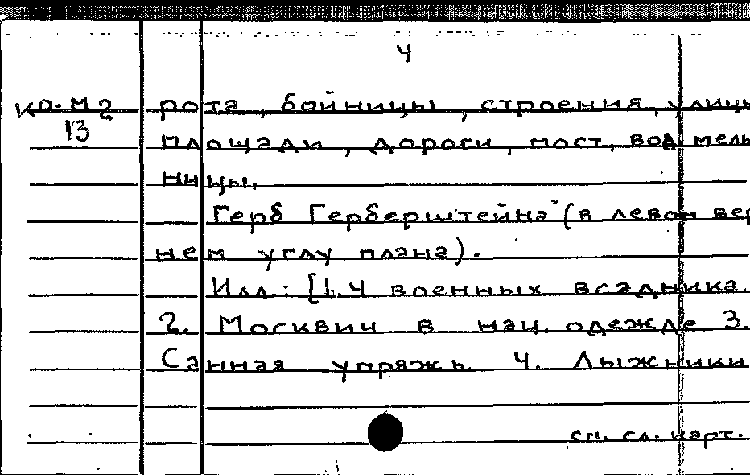 4
Кр. М 2 рота, бойницы, строения, улицы
13 площади, дороги, мост, вод. мель
ницы.
Герб Герберштейна" (в левом вер
нем углу плана).
Илл: [1. 4 военных всадника.
2. Москвич в нац. одежде 3.
Санная упряжь. 4. Лыжники
см. сл. карт.